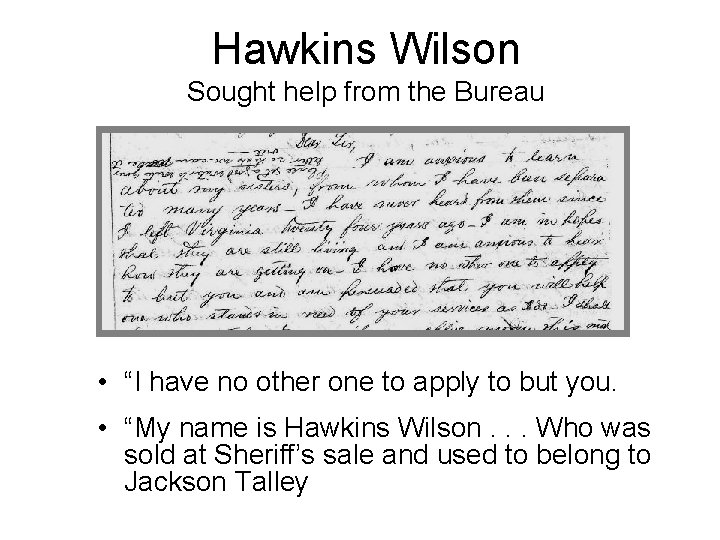 Hawkins Wilson
Sought help from the Bureau
Dear Sir,
I am anxious to learn
about my sisters, from whom I have been separa
ted many years — I have never heard from them since
I left Virginia twenty four years ago — I am in hopes
that they are still living and I am anxious to hear
how they are getting on — I have no other one to apply
to but you and am persuaded that you will help
one who stands in need of your services as I do I shall
• “I have no other one to apply to but you.
• “My name is Hawkins Wilson . . . Who was
sold at Sheriff’s sale and used to belong to
Jackson Talley